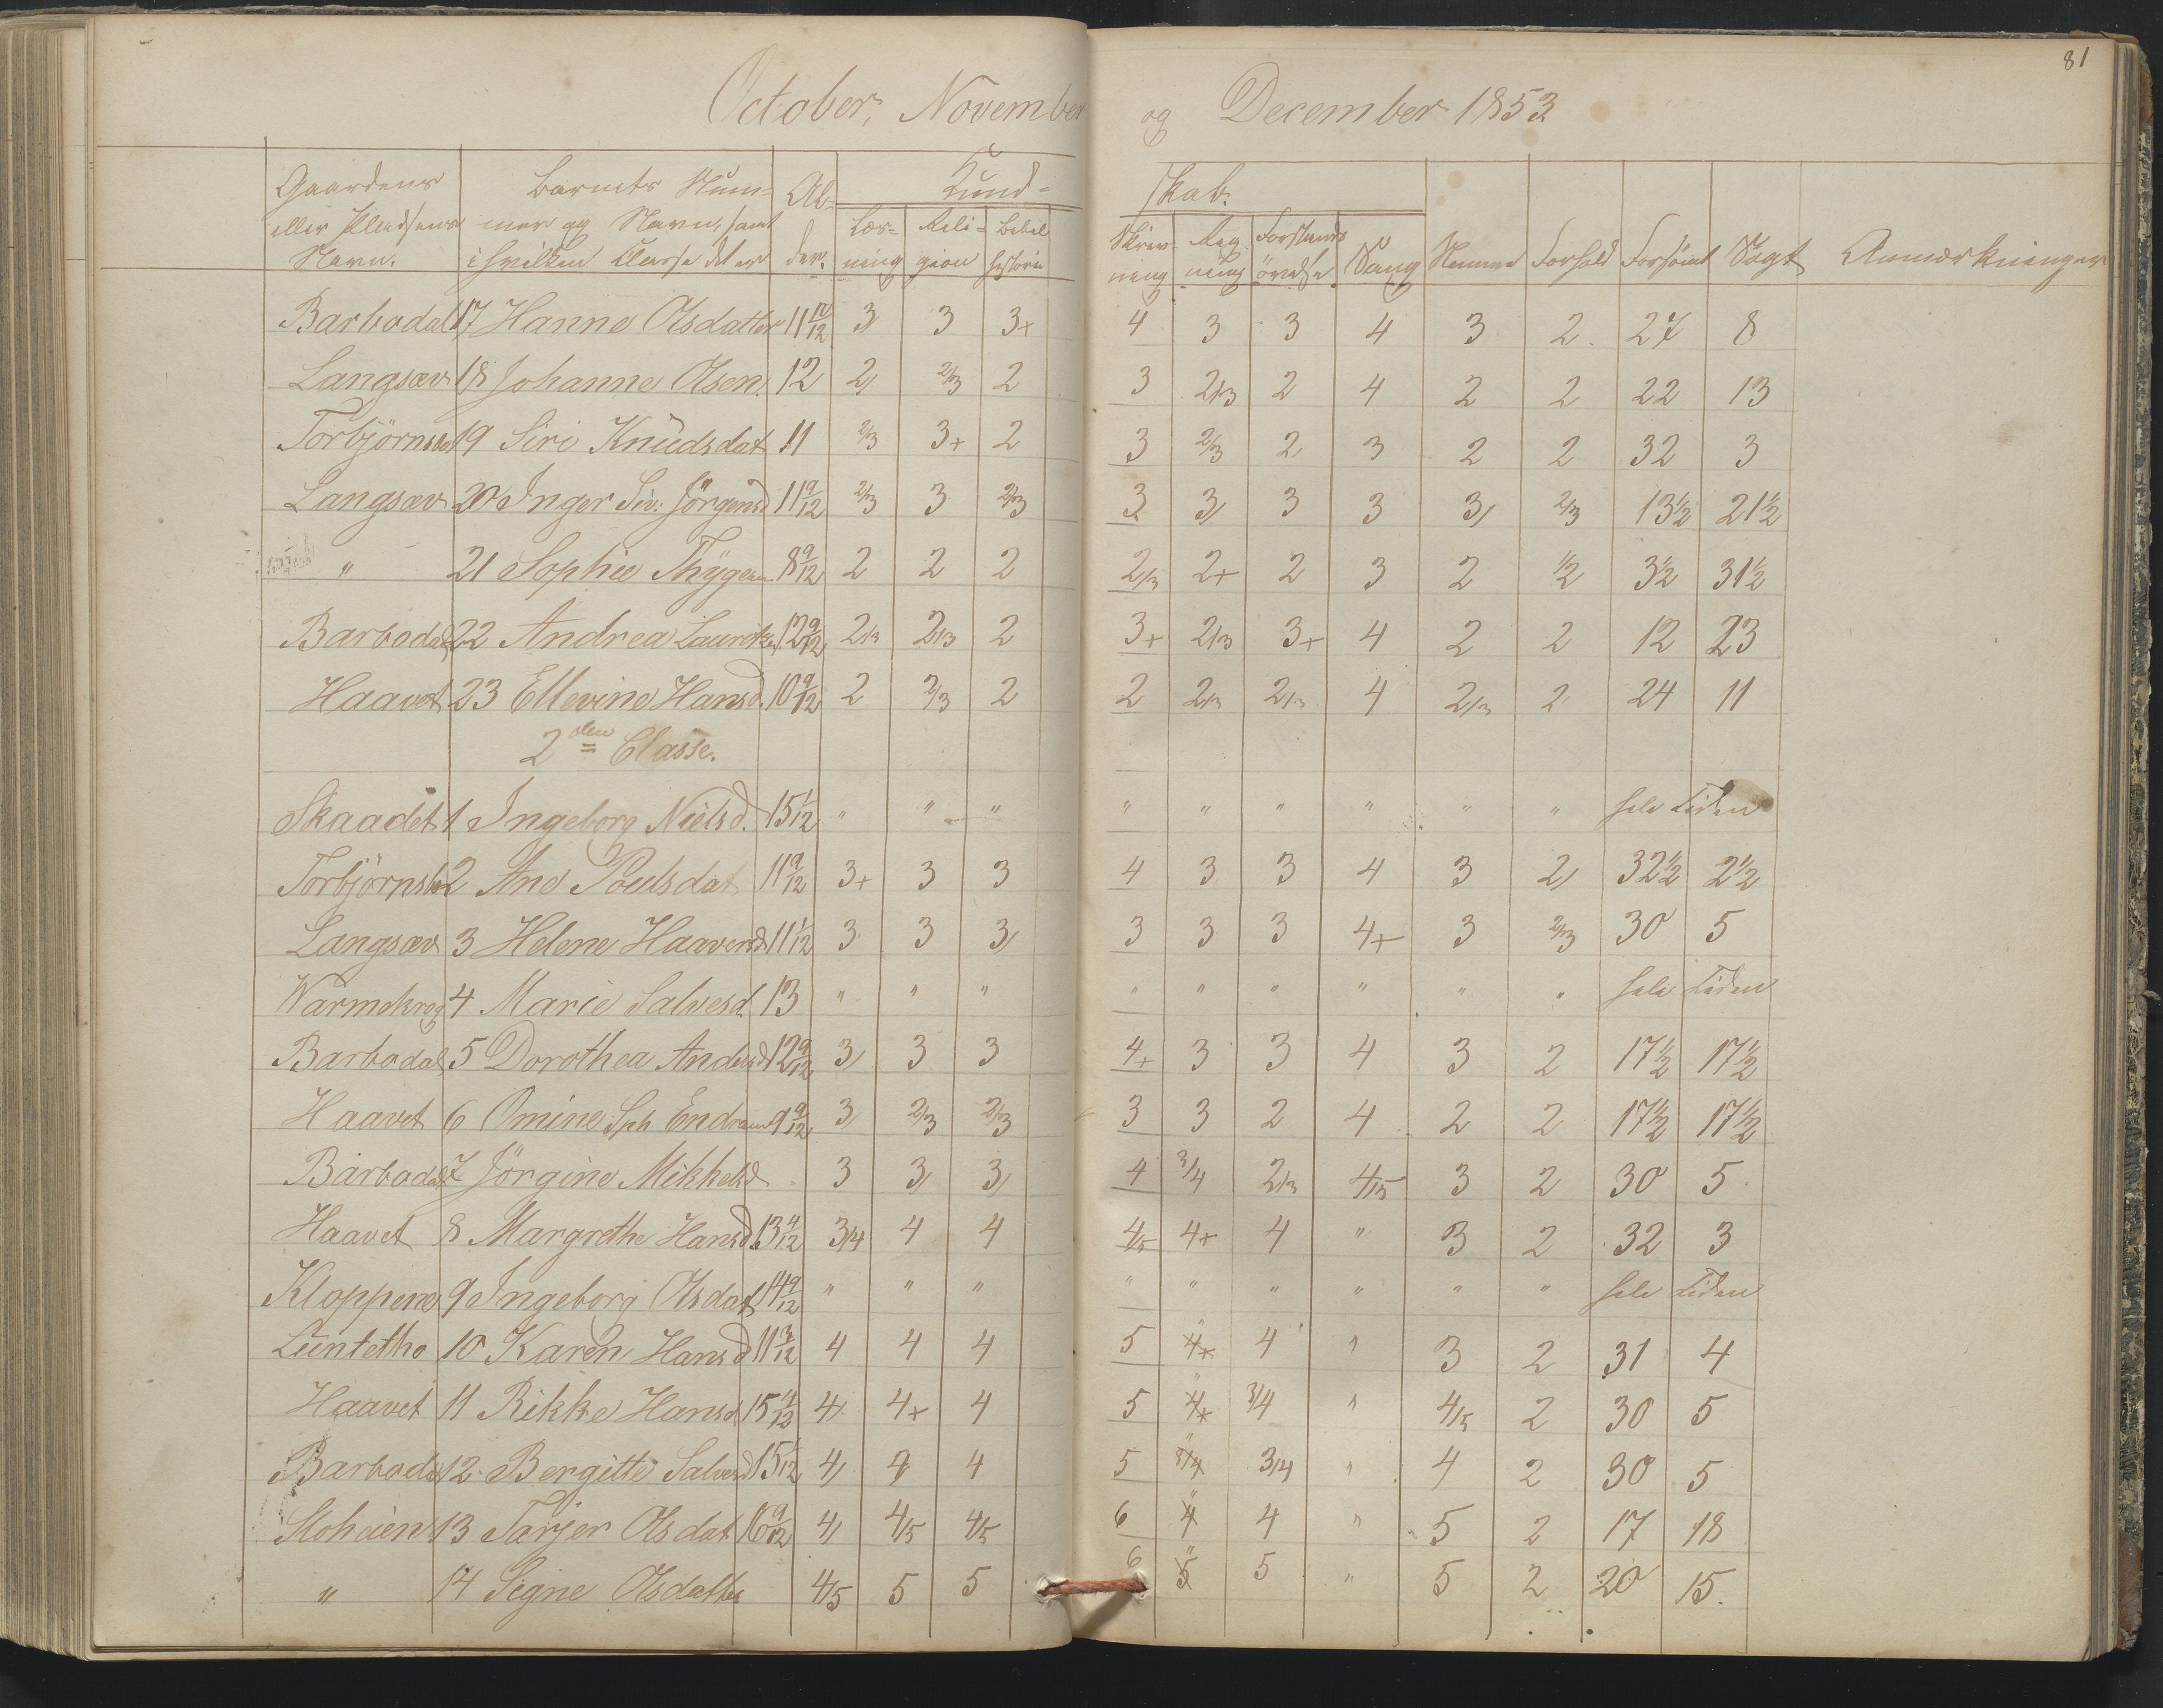 81
October, November og December 1853
Gaardens eller Pladsens Navn. Barnets Nummer og Navn, samt i hvilken Classe det er Alder. Kundskab. Læsning Religion Bibelhistorie Skrivning Regning Forstandsövelse Sang Nemme Forhold Forsömt Sögt Anmærkninger
Barbodal 17 Hanne Olsdatter 11 10/12 3 3 3+ 4 3 3 4 3 2 27 8
Langsæv 18 Johanne Olsen. 12 2 2/3 2 3 2/3 2 4 2 2 22 13
Torbjörnsbo 19 Siri Knudsdat 11 2/3 3+ 2 3 2/3 2 3 2 2 32 3
Langsæv 20 Inger Siv: Jörgensd 11 9/12 2/3 3 2/3 3 3 3 3 3 2/3 13½ 21½
" 21 Sophie Thygesen 8 9/12 2 2 2 2/3 2+ 2 3 2 1/2 3½ 31½
Barbodal 22 Andrea Lauritzen 12 9/12 2/3 2/3 2 3+ 2/3 3+ 4 2 2 12 23
Haavet 23 Ellevine Hansd. 10 9/12 2 2/3 2 2 2/3 2/3 4 2/3 2 24 11
2den Classe.
Skaadet 1 Ingeborg Nielsd. 15 1/12 " " " " " " " " " hele Tiden
Torbjörnsbo 2 Ane Poulsdat 11 9/12 3+ 3 3 4 3 3 4 3 2 32½ 2½
Langsæv 3 Helene Haavorsd 11 1/12 3 3 3 3 3 3 4+ 3 2/3 30 5
Warmekrog 4 Marie Salvesd. 13 " " " " " " " " " hele Tiden
Barbodal 5 Dorothea Andersd 12 9/12 3 3 3 4+ 3 3 4 3 2 17½ 17½
Haavet 6 Omine Sph Endresen 9 9/12 3 2/3 2/3 3 3 2 4 2 2 17½ 17½
Barbodal 7 Jörgine Mikkelsd 3 3 3 4 3/4 2/3 4/5 3 2 30 5
Haavet 8 Margrethe Hansd. 13 4/12 3/4 4 4 4/5 4+ 4 " 3 2 32 3
Kloppene 9 Ingeborg Olsdat 14 9/12 " " " " " " " " " hele Tiden
Luntetho 10 Karen Hansd 11 3/12 4 4 4 5 4+ 4 " 3 2 31 4
Haavet 11 Rikke Hansd 15 4/12 4 4+ 4 5 4+ 3/4 " 4/5 2 30 5
Barbodal 12 Bergitte Salvesd 15 1/12 4 4 4 5 3/4 3/4 " 4 2 30 5
Stoheien 13 Tarjer Olsdat 16 9/12 4 4/5 4/5 6 4 4 " 5 2 17 18
" 14 Signe Olsdatter 4/5 5 5 6 5 5 " 5 2 20 15.